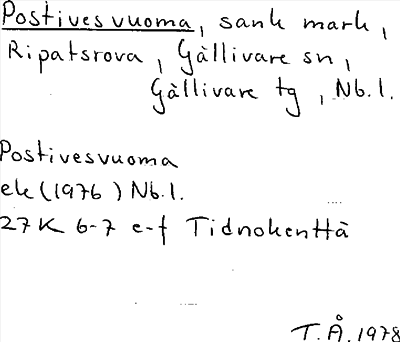 Postives vuoma, sank mark,
Ripatsrova, Gällivare sn,
Gällivare tg, Nb.l.
Postivesvuoma
ek (1976) Nb.l.
27K 6-7 e-f Tidnokenttä
T.Å. 1978